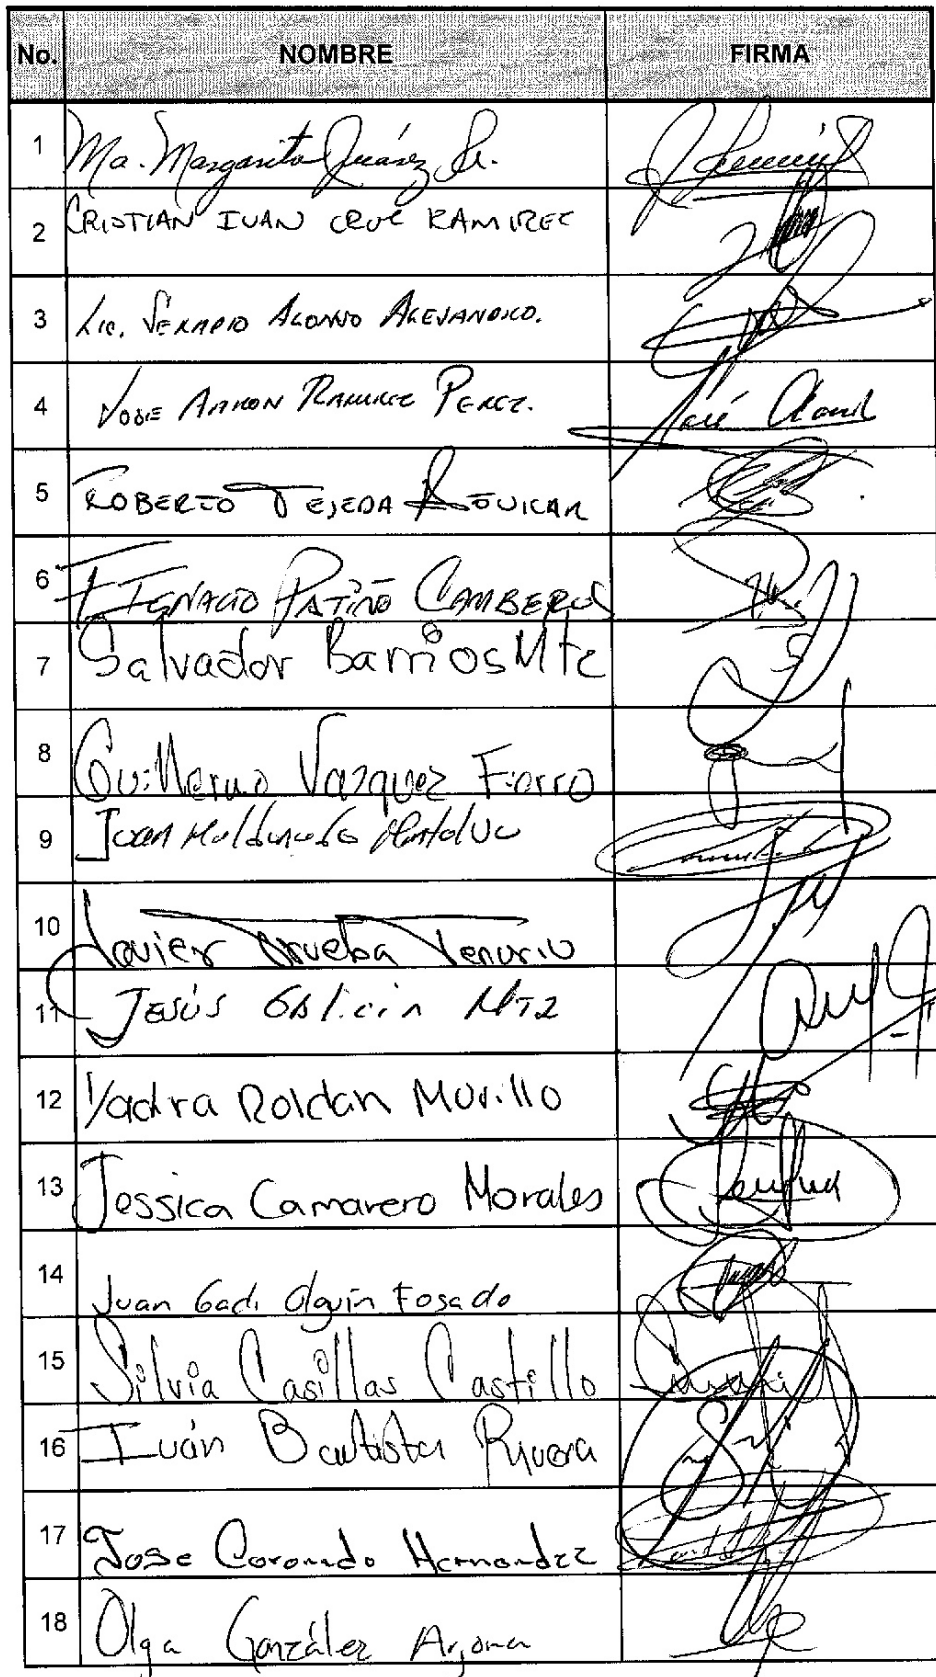 No. NOMBRE FIRMA
1 Ma. Margarita Juárez
2 CRISTIAN IVAN CRUZ RAMIREZ
3 Lic. SERAPIO ALONSO ALEJANDRO.
4 JOSE AARON RAMIREZ PEREZ. José
5 ROBERTO TEJEDA
6 IGNACIO PATIÑO CAMBEROS
7 Salvador Barrios Mtz
8 Guillermo Vazquez Fierro
9 Juan Maldonado
10 Javier Trueba Tenorio
11 JESÚS GALICIA MTZ
12 Yadira Roldan Murillo
13 Jessica Camarero Morales
14 Juan Gadi Olguín Fosado
15 Silvia Casillas Castillo
16 Iván Bautista Rivera
17 Jose Coronado Hernandez
18 Olga González Arjona